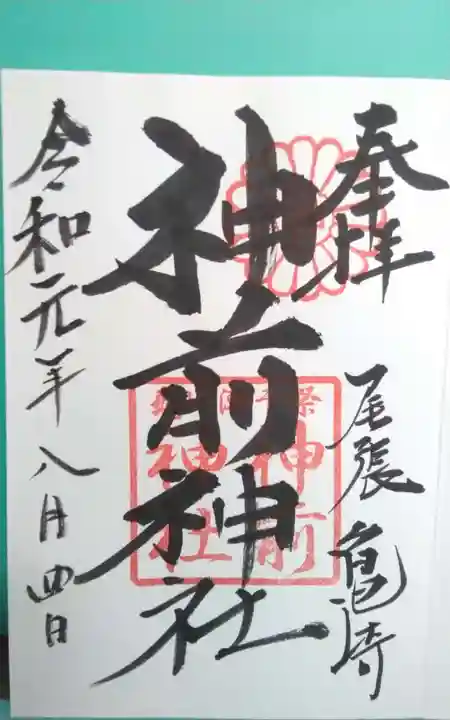 奉拝
尾張 亀崎
神前神社
神前
神社
令和元年八月四日